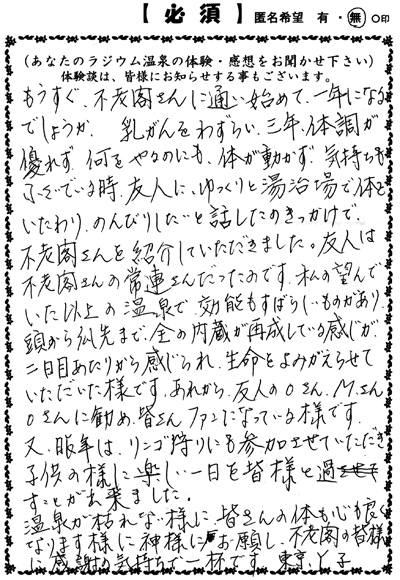 【必須】 匿名希望 有・無 ○印
(あなたのラジウム温泉の体験・感想をお聞かせ下さい)
体験談は、皆様にお知らせする事もございます。
もうすぐ、不老閣さんに通い始めて、一年になる
でしょうか。 乳がんをわずらい、三年、体調が
優れず、何をやるのにも、体が動かず、気持ちも
ふさいでいる時、友人に、ゆっくりと湯治場で体を
いたわり、のんびりしたいと話したのきっかけで、
不老閣さんを紹介していただきました。友人は
不老閣さんの常連さんだったのです。私の望んで
いた以上の温泉で、効能もすばらしいものがあり、
頭から爪先まで、全の内蔵が再成している感じが、
二日目あたりから感じられ、生命をよみがえらせて
いただいた様です。あれから、友人のOさん、Mさん
Oさんに勧め、皆さんファンになっている様です。
又、昨年は、リンゴ狩りにも参加させていただき
子供の様に楽しい一日を皆様と過
すことが出来ました。
温泉が枯れない様に、皆さんの体も心も良く
なります様に神様にお願し、不老閣の皆様
に感謝の気持ちで一杯です。 東京、Y子